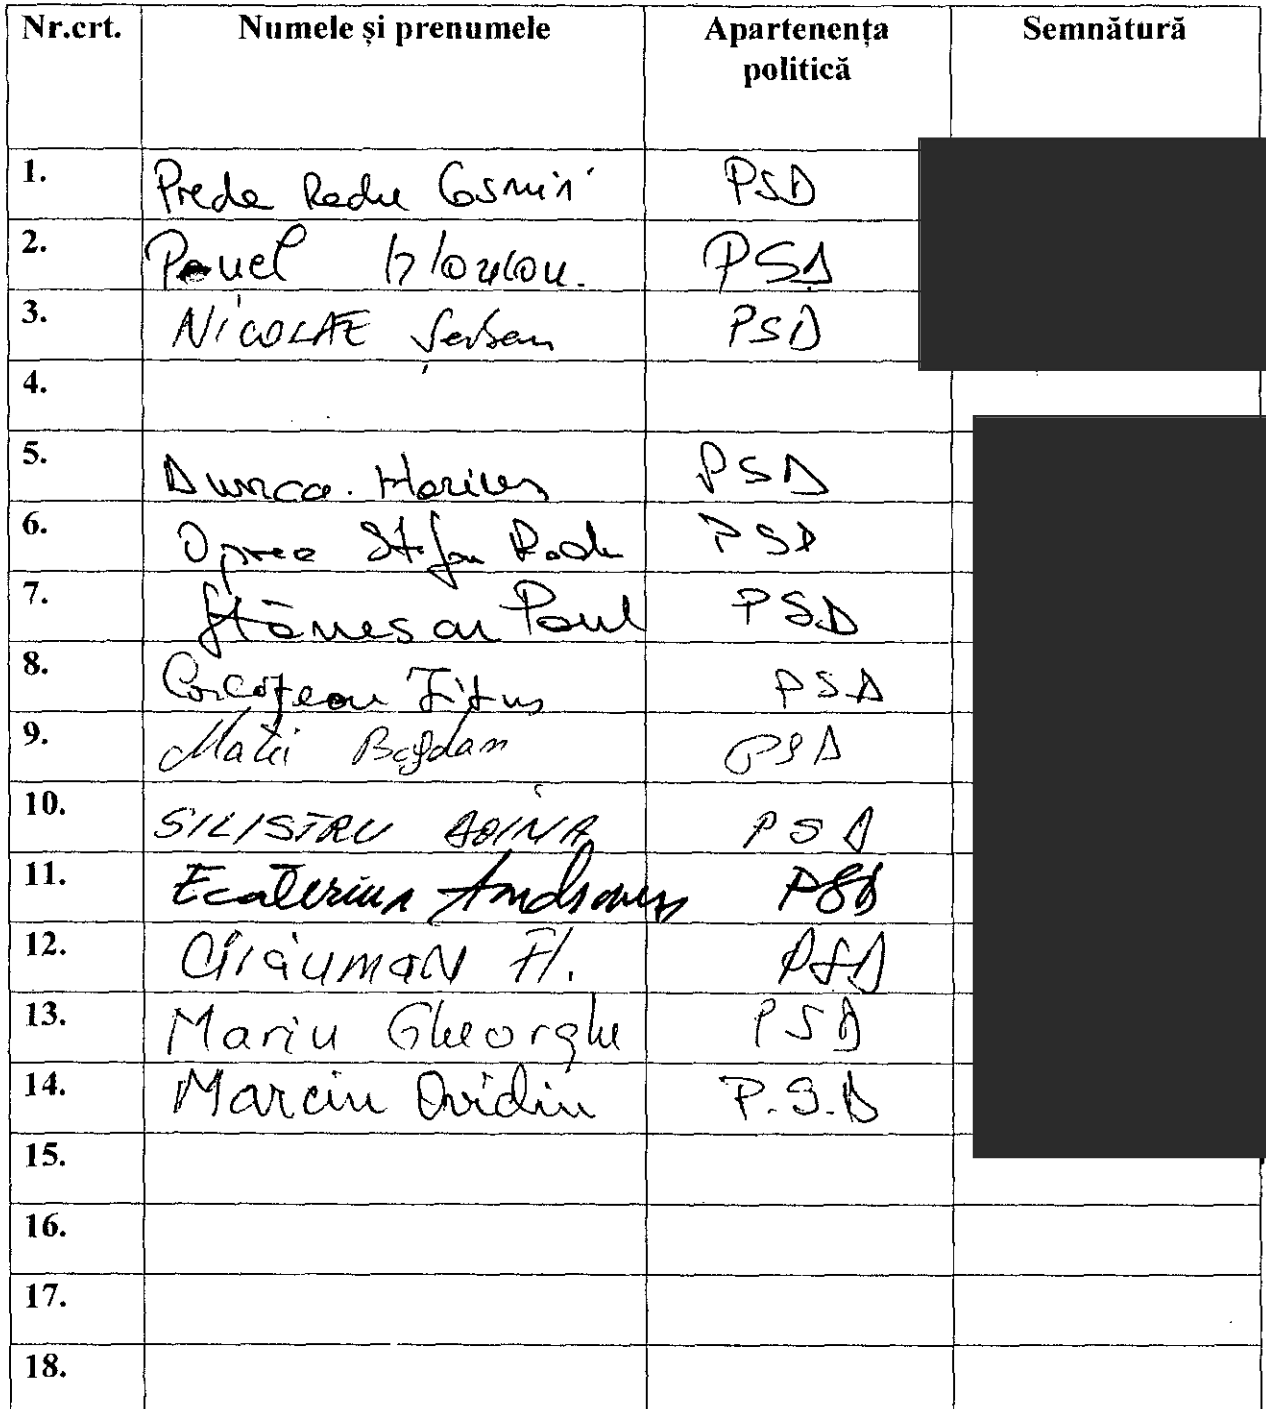 Nr.crt. Numele și prenumele Apartenența politică Semnătură
1. Preda Radu Cosmin PSD
2. Pavel PSD
3. NICOLAE Șerban PSD
4.
5. Dunca Marius PSD
6. Oprea Ștefan Radu PSD
7. Stănescu Paul PSD
8. Corcoțean Titus PSD
9. Matei Bogdan PSD
10. SILISTRU DOINA PSD
11. Ecaterina Andronescu PSD
12. Cîrăumaru Fl. PSD
13. Marin Gheorghe PSD
14. Marciu Ovidiu P.S.D
15.
16.
17.
18.